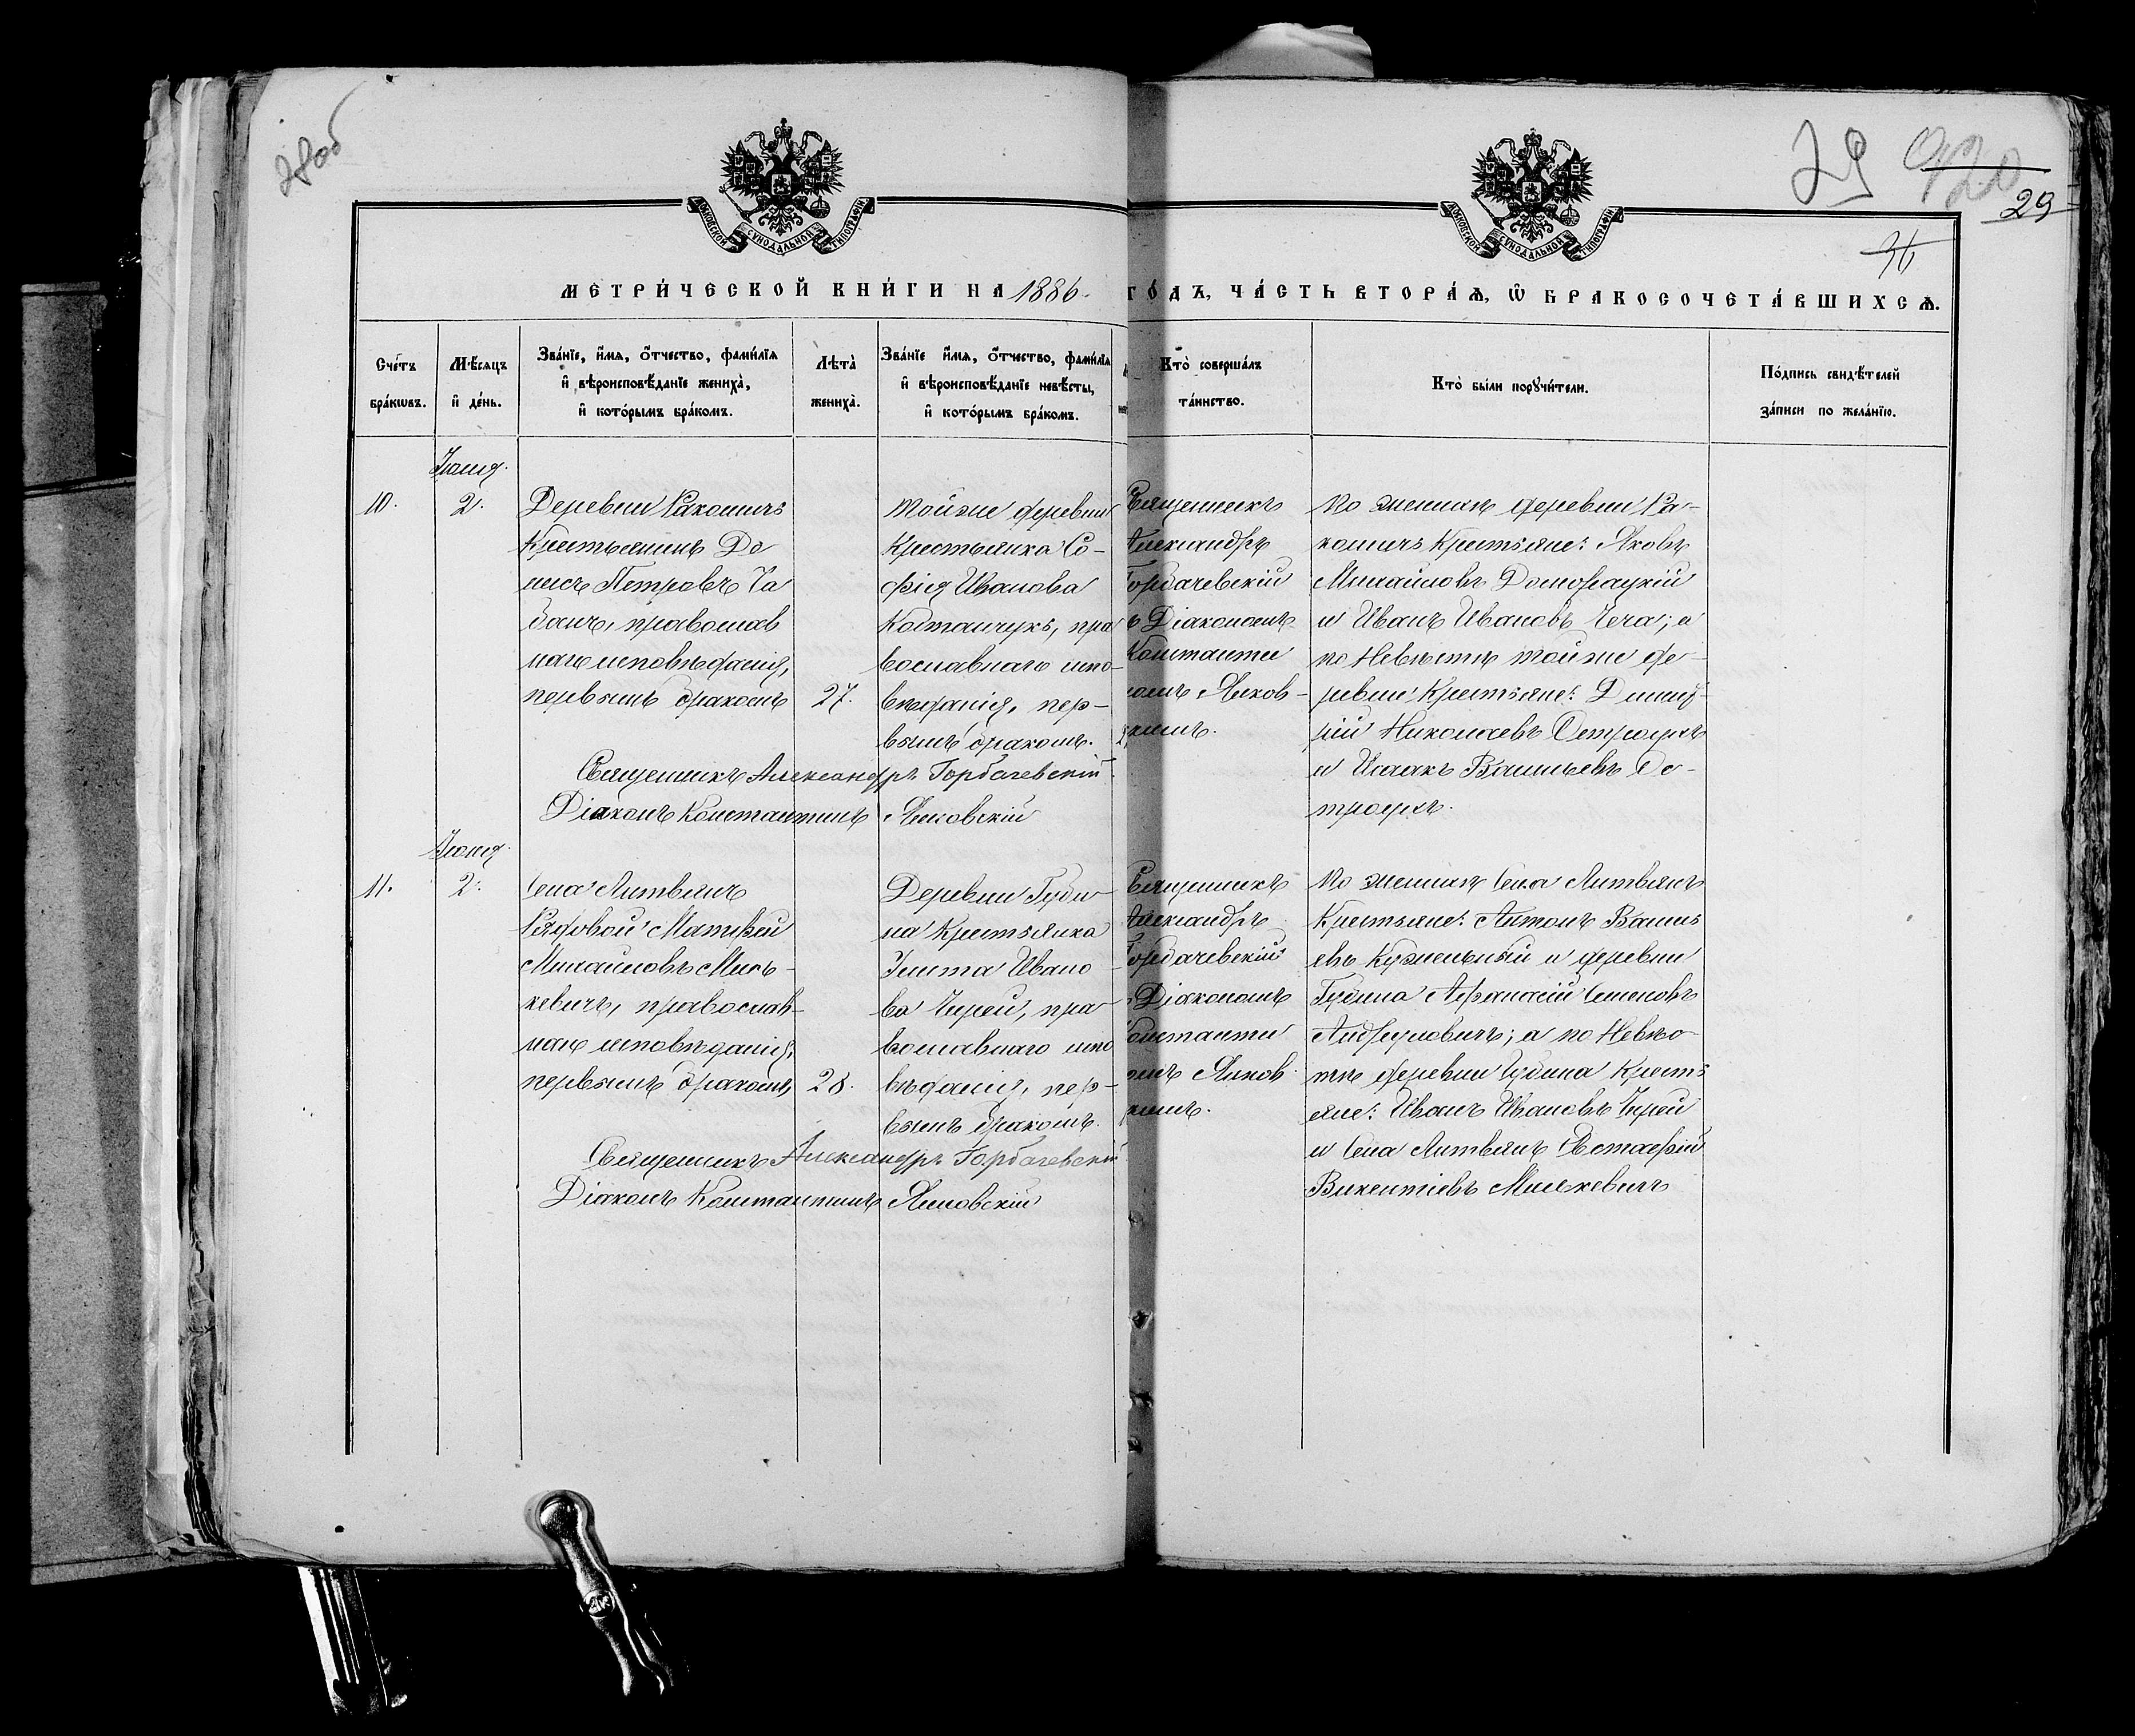 28об
29
920
29
36
МОСКОВСКОЙ СѴНОДАЛЬНОЙ ТИПОГРАФІИ
МОСКОВСКОЙ СѴНОДАЛЬНОЙ ТИПОГРАФІИ
МЕТРИ́ЧЕСКОЙ КНИ́ГИ НА 1886. ГО́ДЪ, ЧА́СТЬ ВТОРА́Ѧ, Ѽ БРАКОСОЧЕТА́ВШИХСѦ.
Сче́тъ
бра́кѡвъ.
Мѣ́сяцъ
и҆ де́нь.
Зва́нїе, и҆́мѧ, ѻ҆́тчество, фами́лїѧ
и҆ вѣроисповѣ́данїе жениха̀,
и҆ кото́рымъ бра́комъ.
Лѣта̀
жениха̀.
Зва́нїе и҆́мѧ, ѻ҆́тчество, фами́лїѧ
и҆ вѣроисповѣ́данїе невѣ́сты,
и҆ кото́рымъ бра́комъ.
Кто̀ соверша́лъ
та́инство.
Кто̀ бы́ли порꙋчи́тели.
По́дпись свидѣ́телей
за́писи по жела́нїю.
Іюня.
10.
2.
Деревни Рахомичъ
Крестьянинъ Де
нисъ Петровъ Ча
банъ, православ
наго исповѣданія,
первымъ бракомъ
27.
тойже деревни
Крестьянка Со-
фія Иванова
Костанчукъ, пра
вославнаго испо-
вѣданія, пер-
вымъ бракомъ.
Священникъ
Александръ
Горбачевскій
съ Діакономъ
Константи
номъ Ясков-
скимъ.
По женихѣ деревни Ра-
комичъ Крестьяне: Яковъ
Михайловъ Доморацкій
и Иванъ Ивановъ Чеча; а
по Невѣстѣ тойже де-
ревни Крестьяне: Димит-
рій Николаевъ Остроухъ
и Исаакъ Васильевъ Ос-
троухъ.
Священникъ Александръ Горбачевскій.
Діаконъ Константинъ Ясковскій
Іюня.
11.
2.
Села Литвянъ
Рядовой Матѳей
Михайловъ Мись-
кевичъ, православ-
наго исповѣданія,
первымъ бракомъ,
28.
Деревни Губи
на Крестьянка
Улита Ивано-
ва Чирей, пра-
вославнаго испо
вѣданія, пер-
вымъ бракомъ.
Священникъ
Александръ
Горбачевскій
съ Діакономъ
Константи
номъ Ясков-
скимъ.
По женихѣ Села Литвянъ
Крестьяне: Антонъ Василь
евъ и деревни
Губина Афанасій Семеновъ
а по Невѣс-
тѣ деревни Губина Кресть
яне: Иванъ Ивановъ Чирей
и Села Литвянъ Евстафій
Викентіевъ Миськевичъ
Священникъ Александръ Горбачевскій
Діаконъ Константинъ Ясковскій